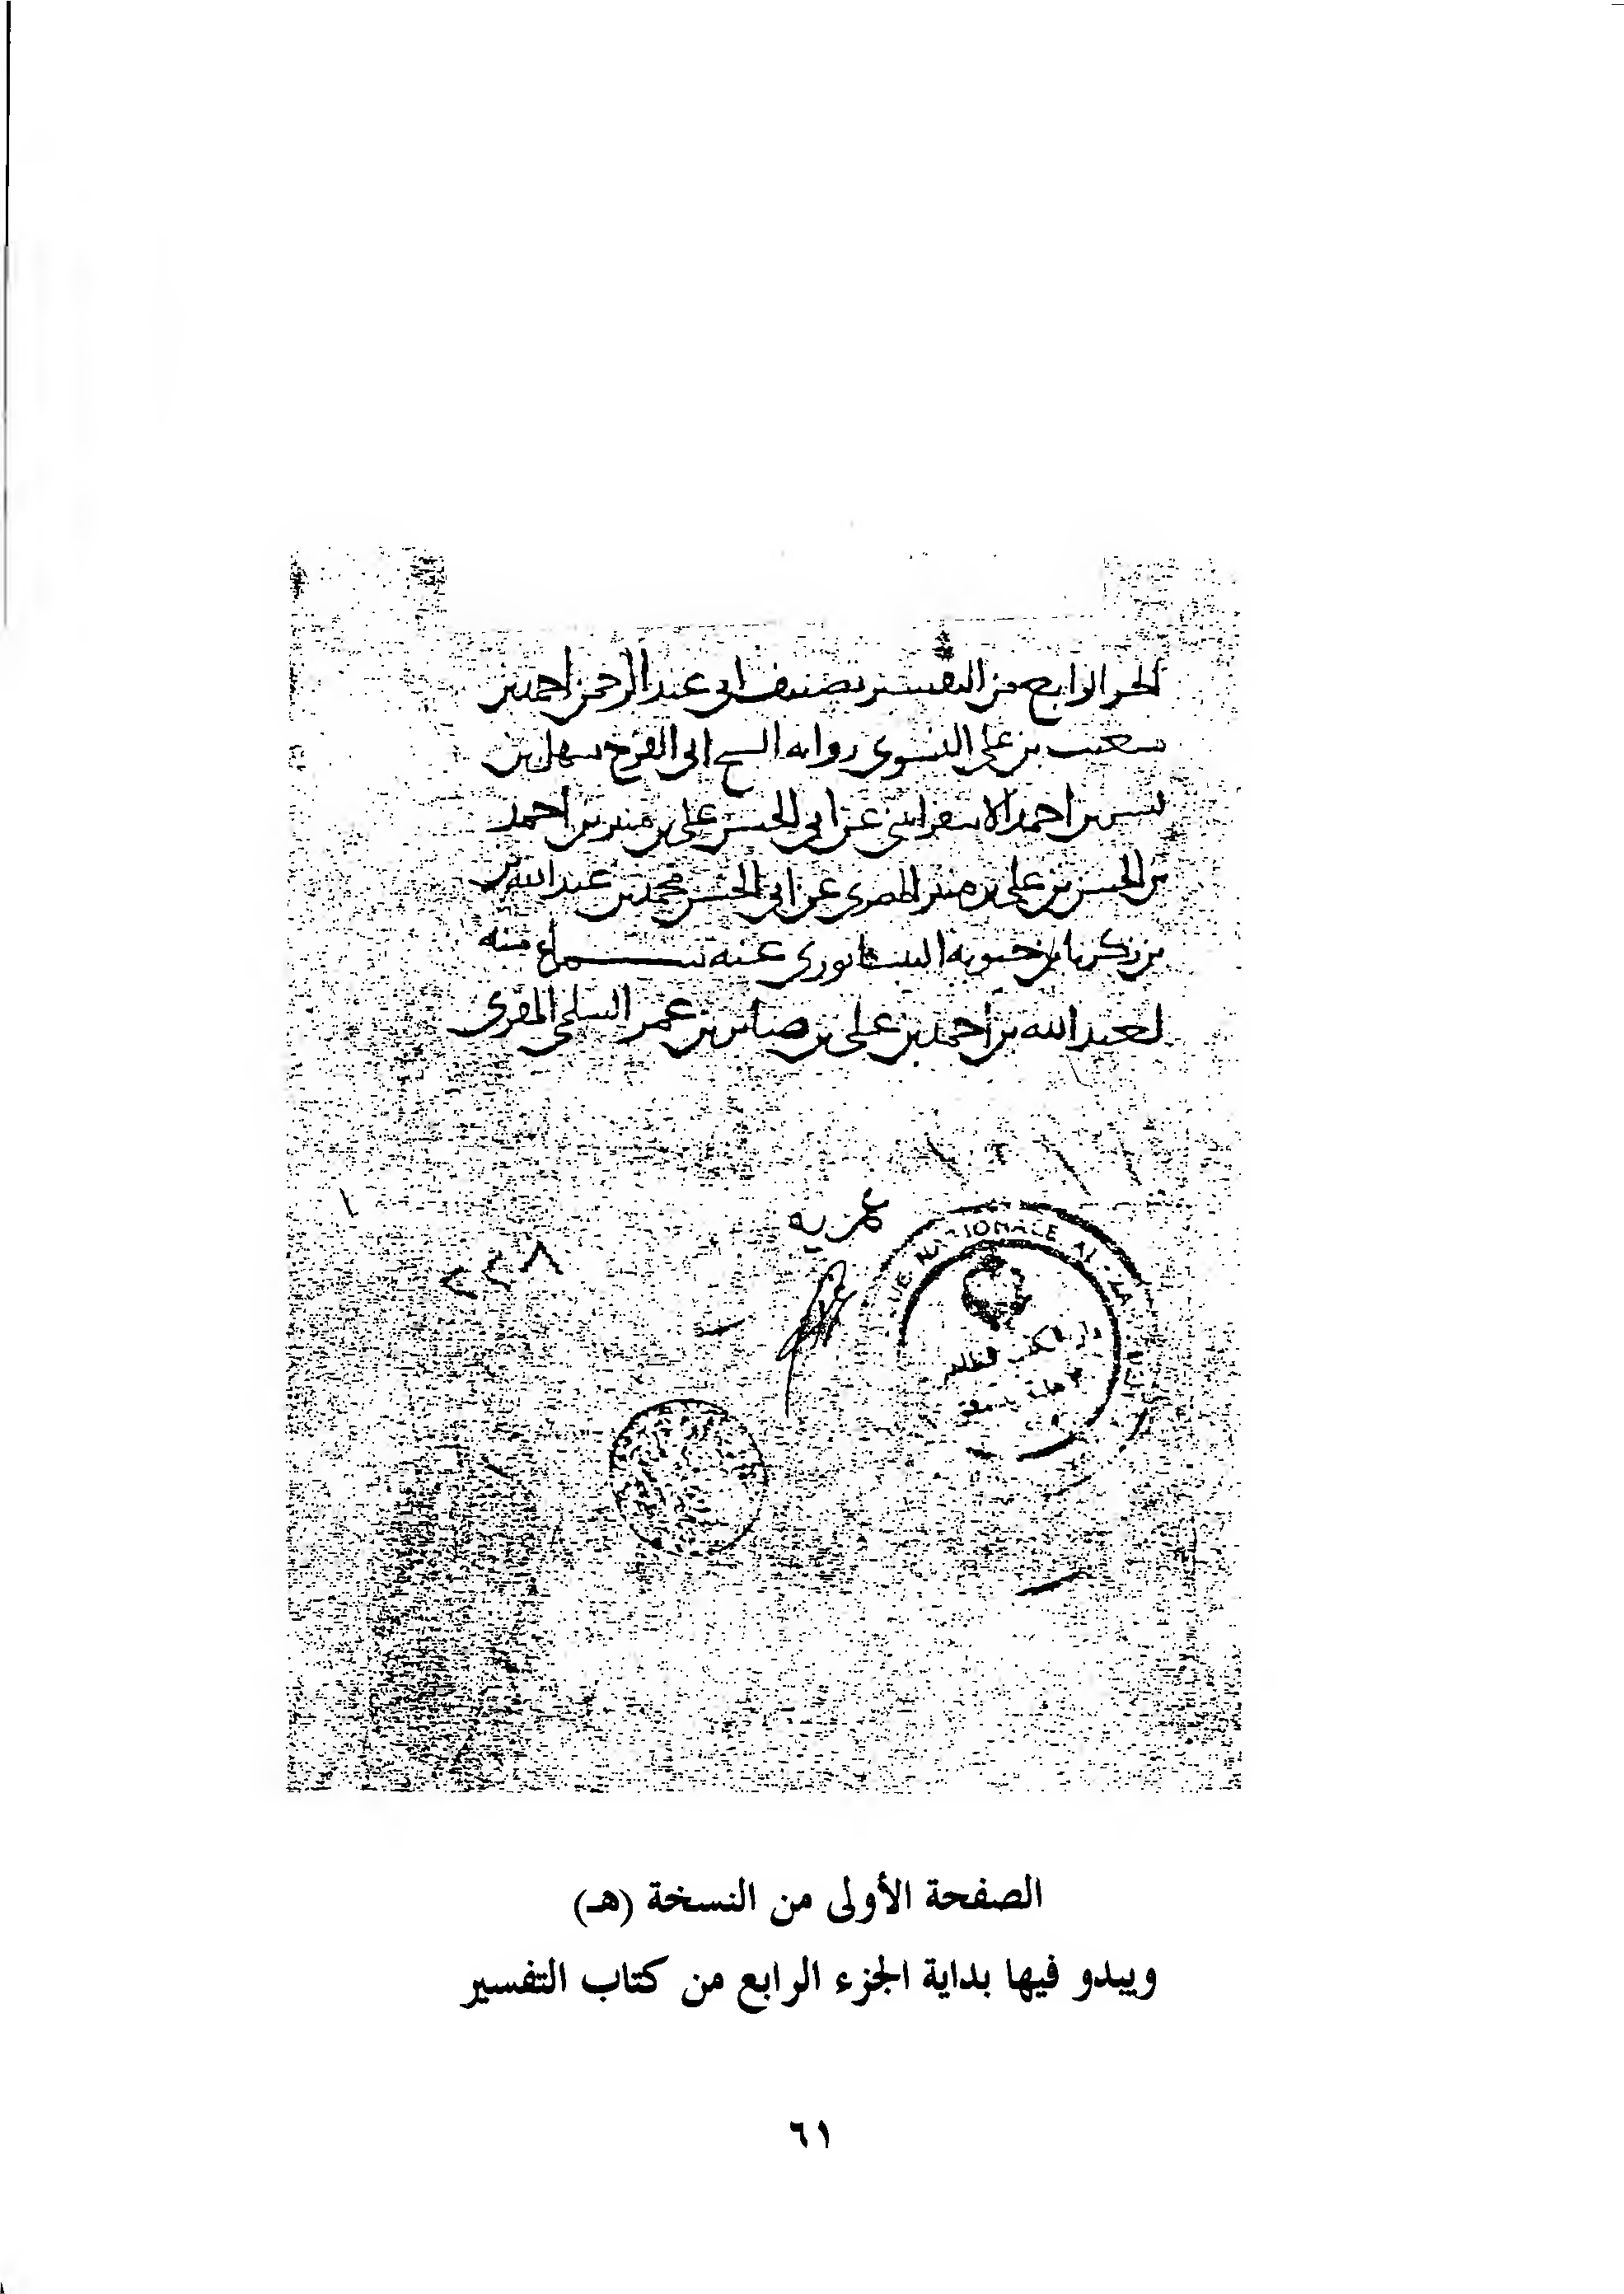 الجز الرابع من التفسير تصنيف ابي عبد الرحمن احمد بن
شعيب بن علي النسوي رواية الشيخ ابي الفرج سهل بن
بشر بن احمد الاسفرايني عن ابي الحسن علي بن منير بن احمد
بن الحسن بن علي بن منير المصري عن ابي الحسن محمد بن عبد الله بن
بن زكريا بن حيويه النيسابوري عنه سماع منه
لعبد الله بن احمد بن علي بن صابر بن عمر السلمي المقري
عمريه
NATIONALE AL
٢٤٨
الصفحة الأولى من النسخة (هـ)
ويبدو فيها بداية الجزء الرابع من كتاب التفسير
٦١